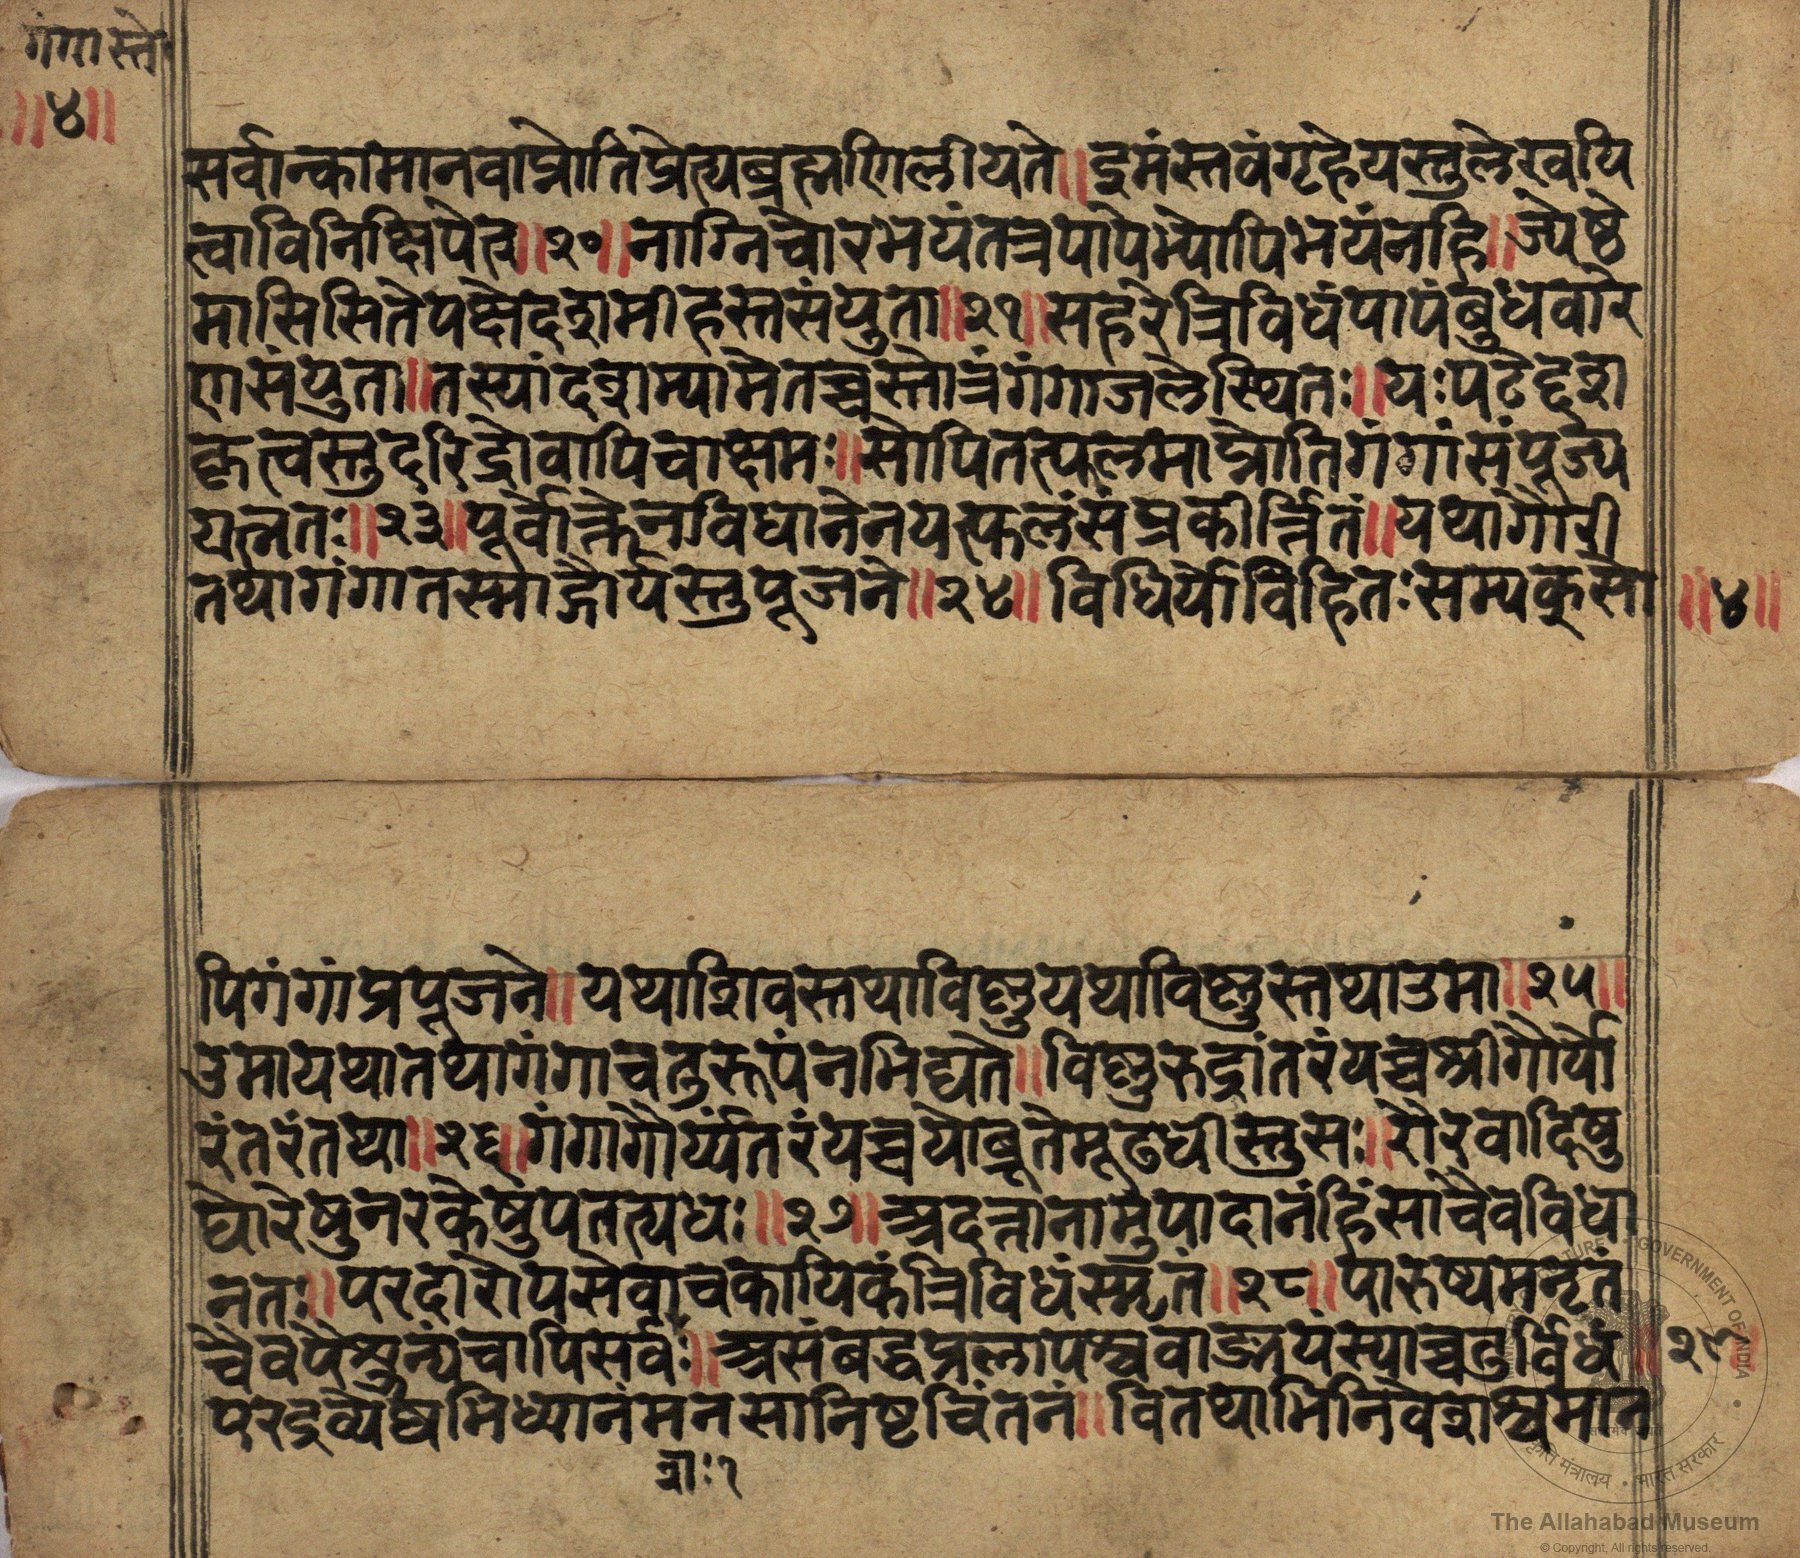 गंगास्ते
॥४॥
सर्वान्कामानवाप्नोतिप्रेत्यब्रह्मणिलीयते॥इमंस्तवंगृहेयस्तुलेखयि
त्वाविनिक्षिपेत्र॥२०॥नाग्निचौरभयंतत्रपापेभ्योपिभयंनहि॥ज्येष्ठे
मासिसितेपक्षेदशमीहस्तसंयुता॥२१॥सहरेत्रिविधंपापंबुधवारे
णसंयुता॥तस्यांदशम्यामेतच्चस्तोत्रंगंगाजलेस्थितः॥यःपठेद्दश
कृत्वस्तुदरिद्रोवापिचाक्षमः॥सोपितत्फलमाप्नोतिगंगांसंपूज्य
यत्नतः॥२३॥पूर्वोक्तेनविधानेनयत्फलंसंप्रकीर्त्तितं॥यथागौरी
तथागंगातस्माद्गौर्यस्तुपूजने॥२४॥विधिर्योविहितःसम्यक्सो
॥४॥
पिगंगांप्रपूजने॥यथाशिवस्तथाविष्णुयथाविष्णुस्तथाउमा॥२५॥
उमायथातथागंगाचतुरूपंनभिद्यते॥विष्णुरुद्रांतरंयच्चश्रीगौर्यो
रंतरंतथा॥२६॥गंगागौर्य्यंतरंयच्चयोब्रूतेमूढधीस्तुसः॥रौरवादिषु
घोरेषुनरकेषुपतत्यधः॥२७॥अदत्तानामुपादानंहिंसाचैवविधा
नतः॥परदारोपसेवाचकायिकंत्रिविधंस्मृतं॥२८॥पारुष्यमनृतं
चैवपैशुन्यंचापिसर्वः॥असंबद्धप्रलापश्चवाङ्मयंस्याच्चतुर्विधं॥२९॥
परद्रव्येष्वभिध्यानंमनसानिष्टचिंतनं॥वितथाभिनिवेशश्चमान
शः१
The Allahabad Museum
© Copyright, All rights reserved.